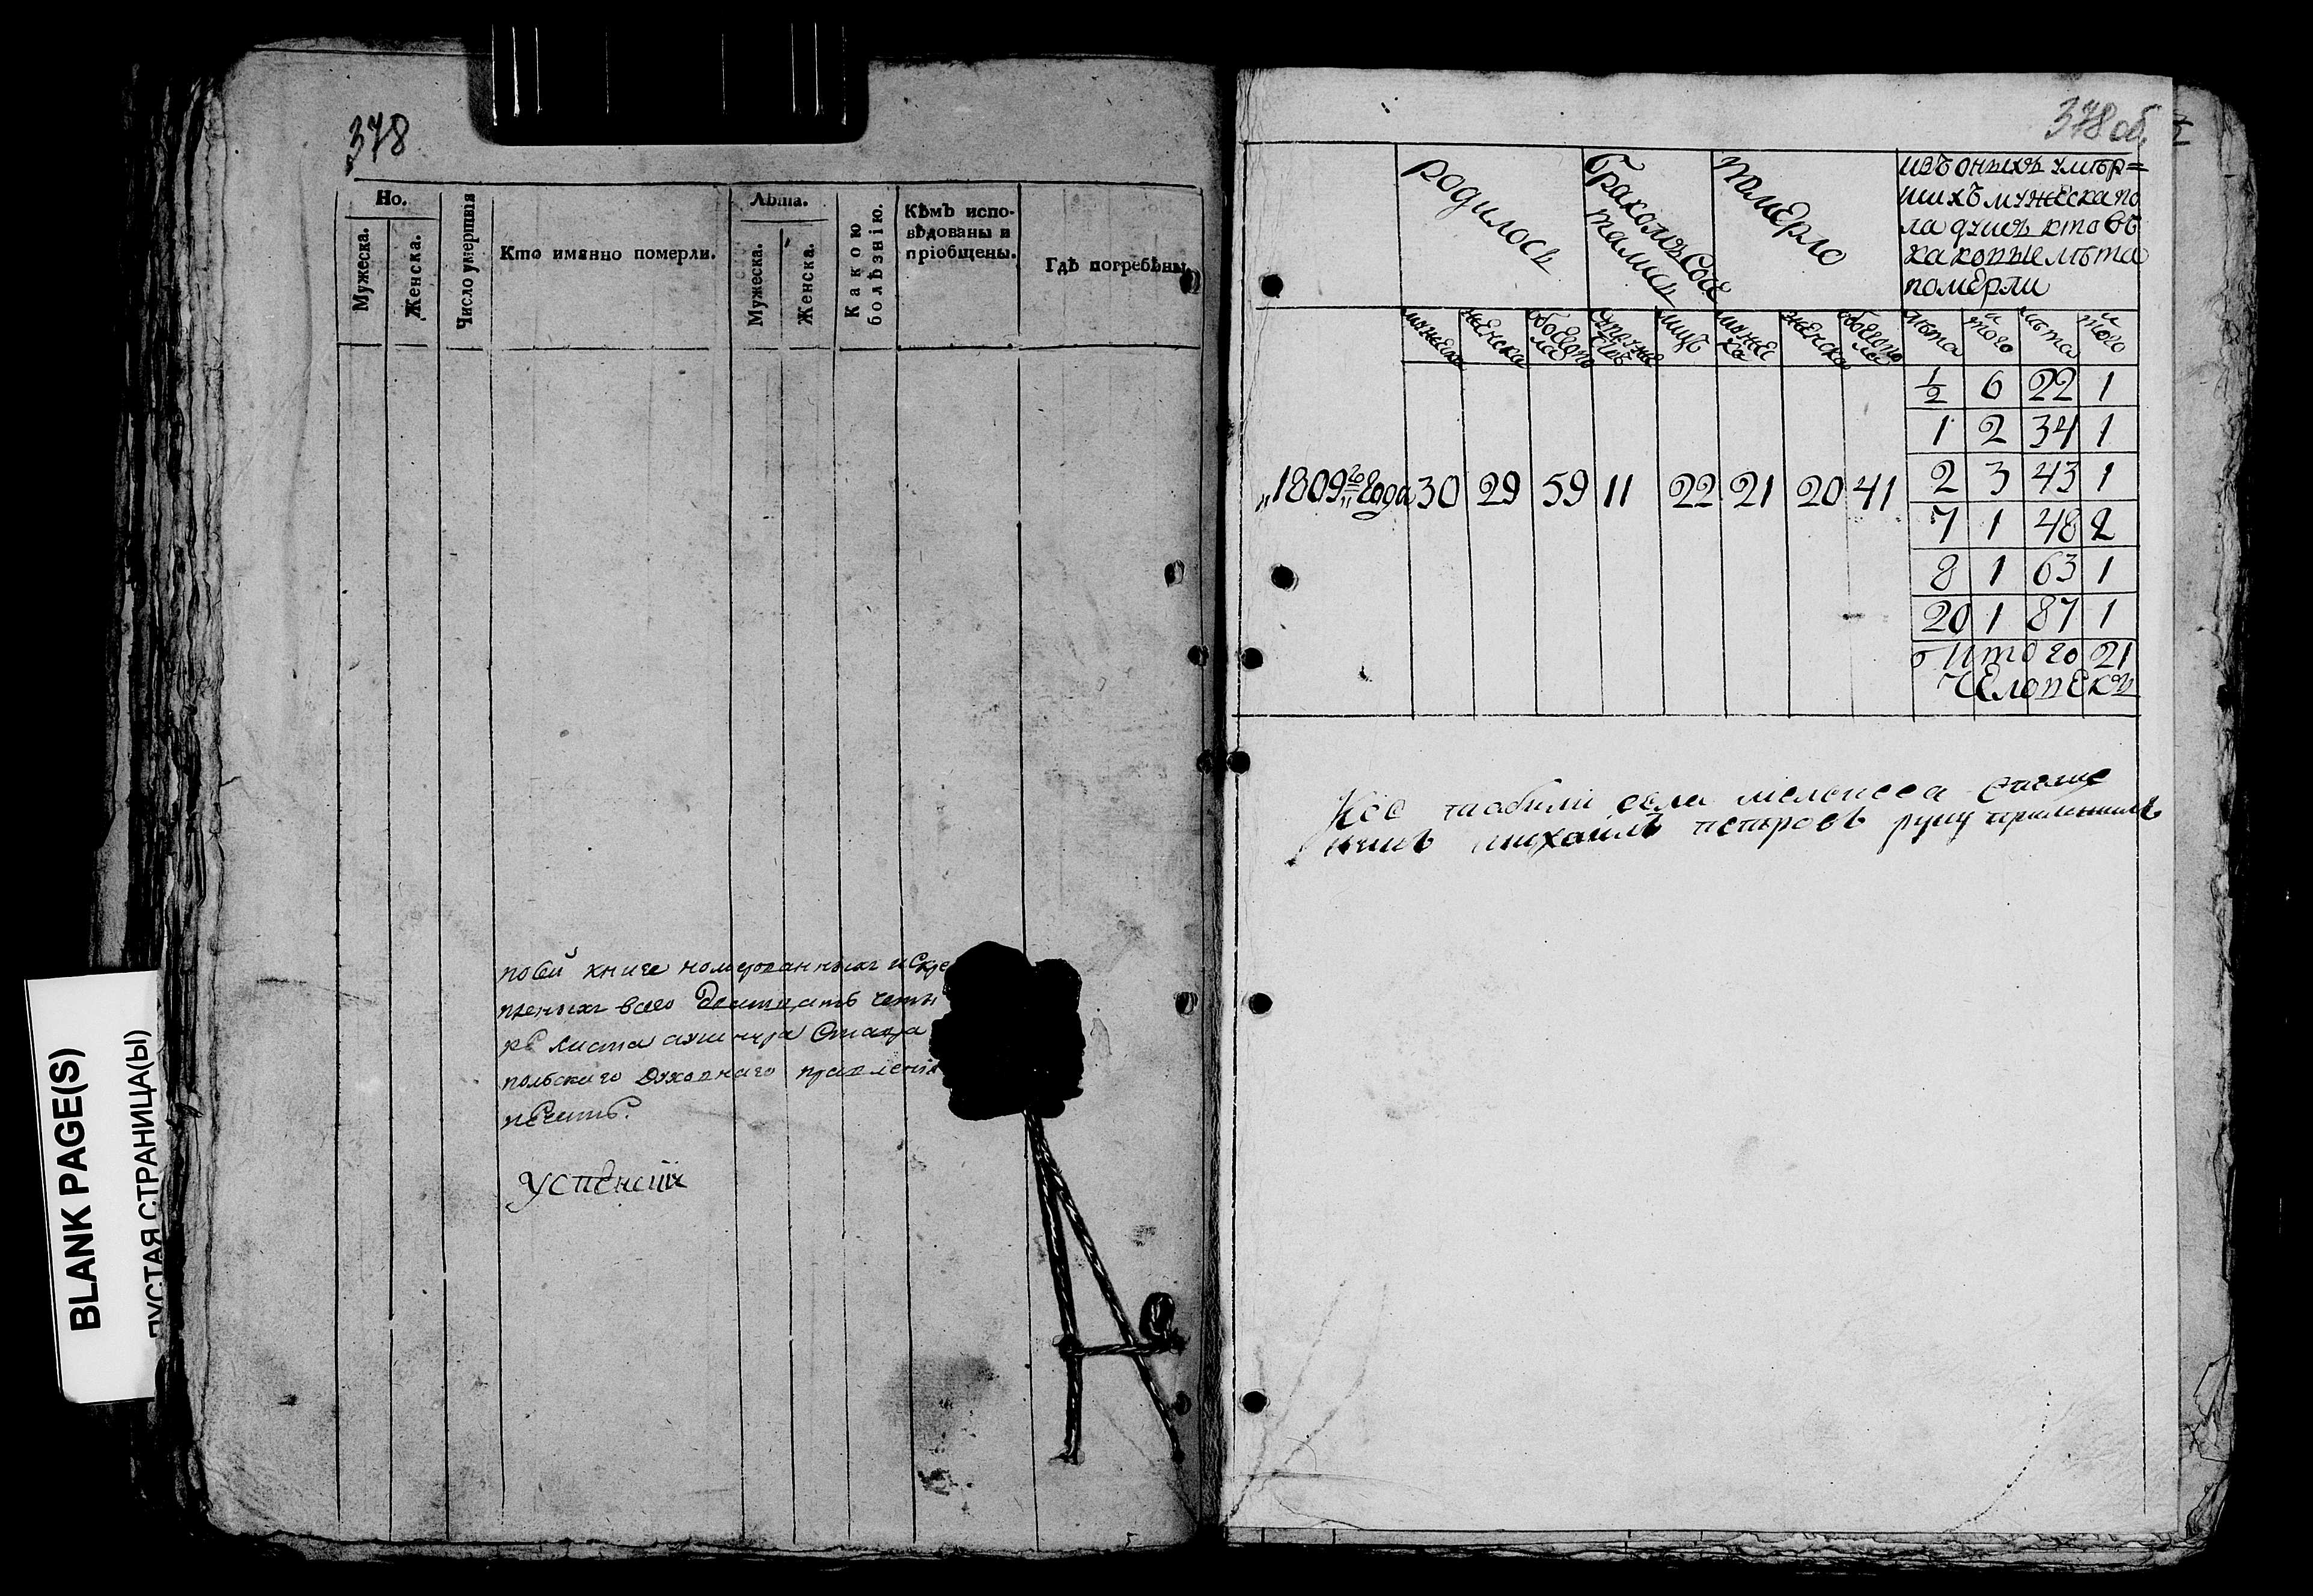 378
Но.
Мужеска.
Женска.
Число умершия
Кто имянно померли.
Лѣта.
Мужеска.
Женска.
Какою болѣзнію.
Кѣмъ испо-
вѣдованы и
пріобщены.
Гдѣ погребены
по сей книге номерованныхъ и скре
пленыхъ всего дватцать четы
ре листа
польского духовнаго правленія
печать.
Успенскій
BLANK PAGE(S)
ПУСТАЯ СТРАНИЦА(Ы)
378 об.
родилось
бракомъ соче
тались
померло
изъ оныхъ умер=
шихъ мужеска по
ла душъ кто въ
каковые лѣта
померли
мужеска
женска
обоего по
ла
лицъ
мужес
ка
женска
обоего по
ла
лѣта
итого
лѣта
итого
1809го года 30 29 59 11 22 21 20 41
1/2 6 22 1
1 2 34 1
2 3 43 1
7 1 48 2
8 1 63 1
20 1 87 1
Итого 21
человекъ
села
михаилъ петровъ руку приложилъ